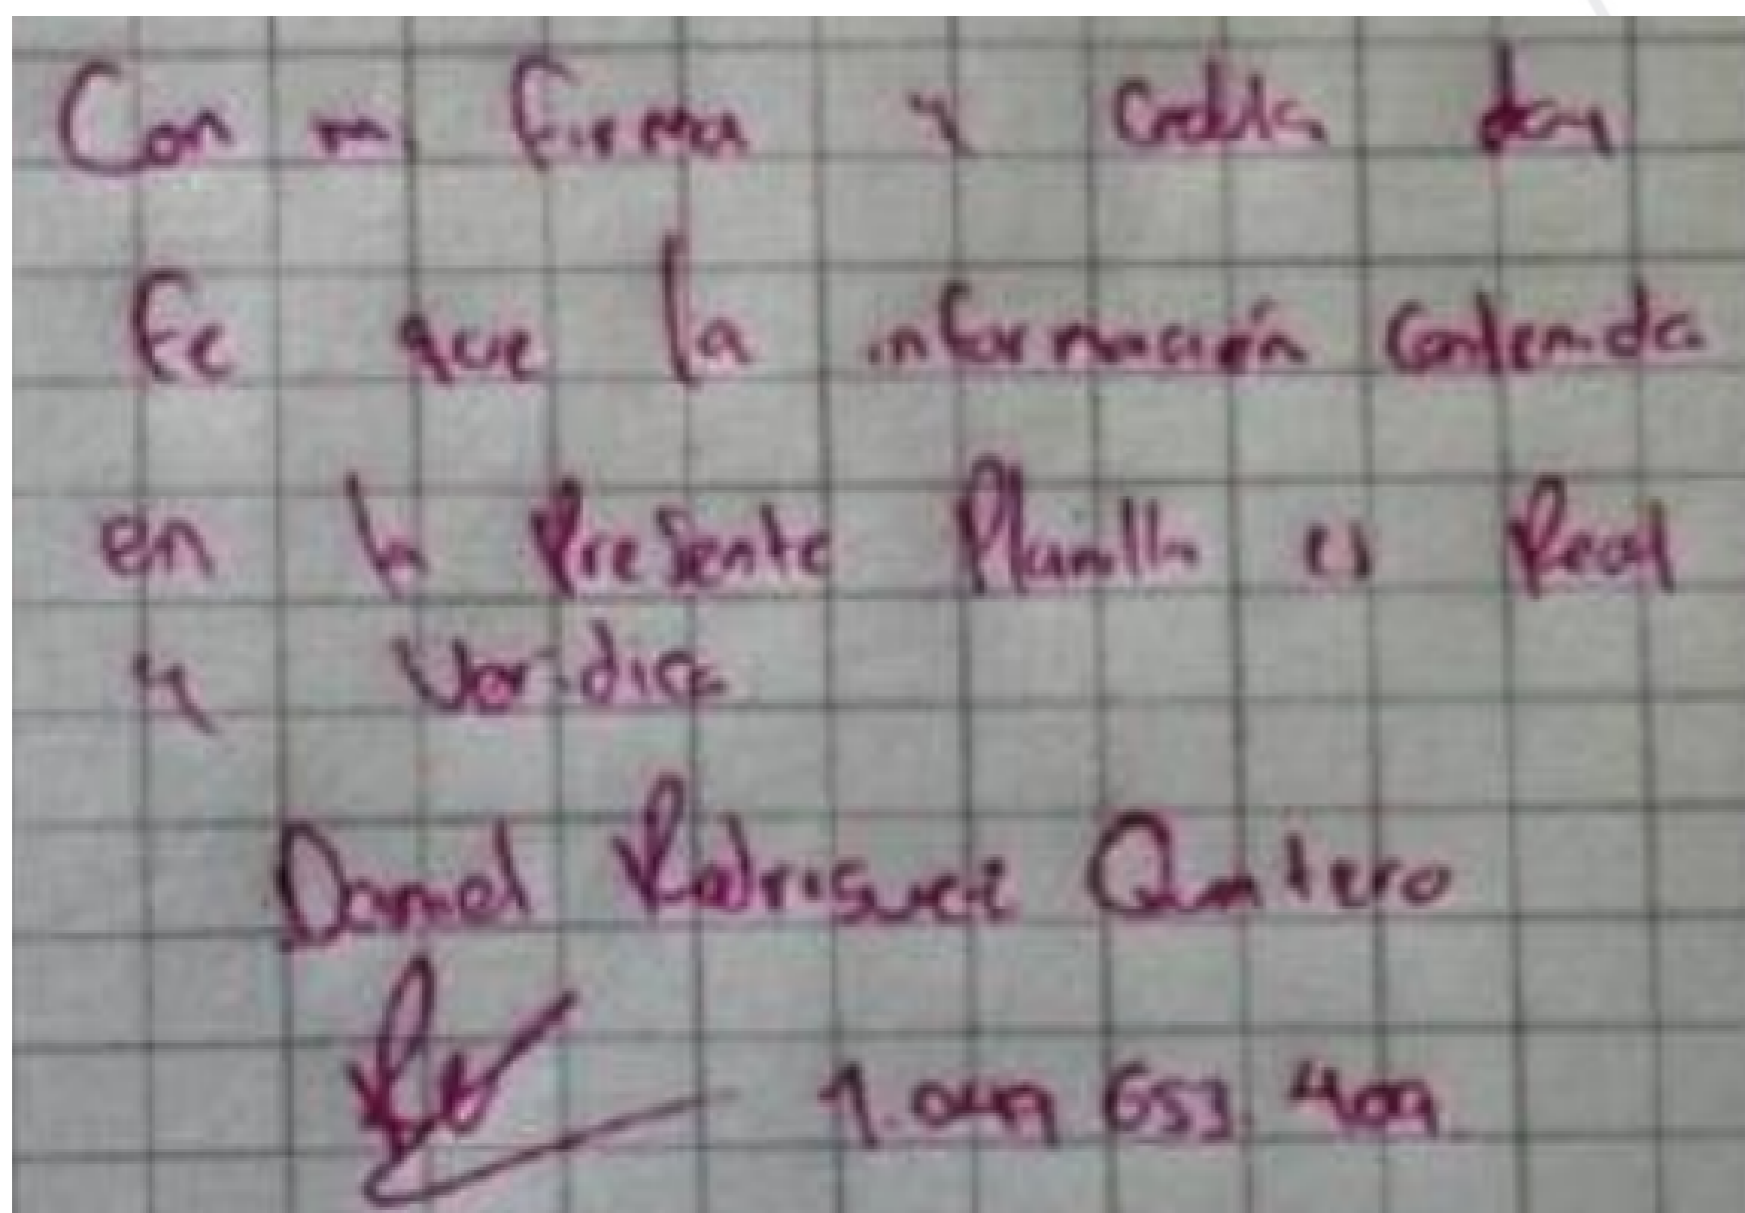 Con mi firma y Cedula doy
fe que la información Contenida
en la Presente Planilla es Real
y Veridica
Daniel Rodriguez Quintero
1.049 653. 409